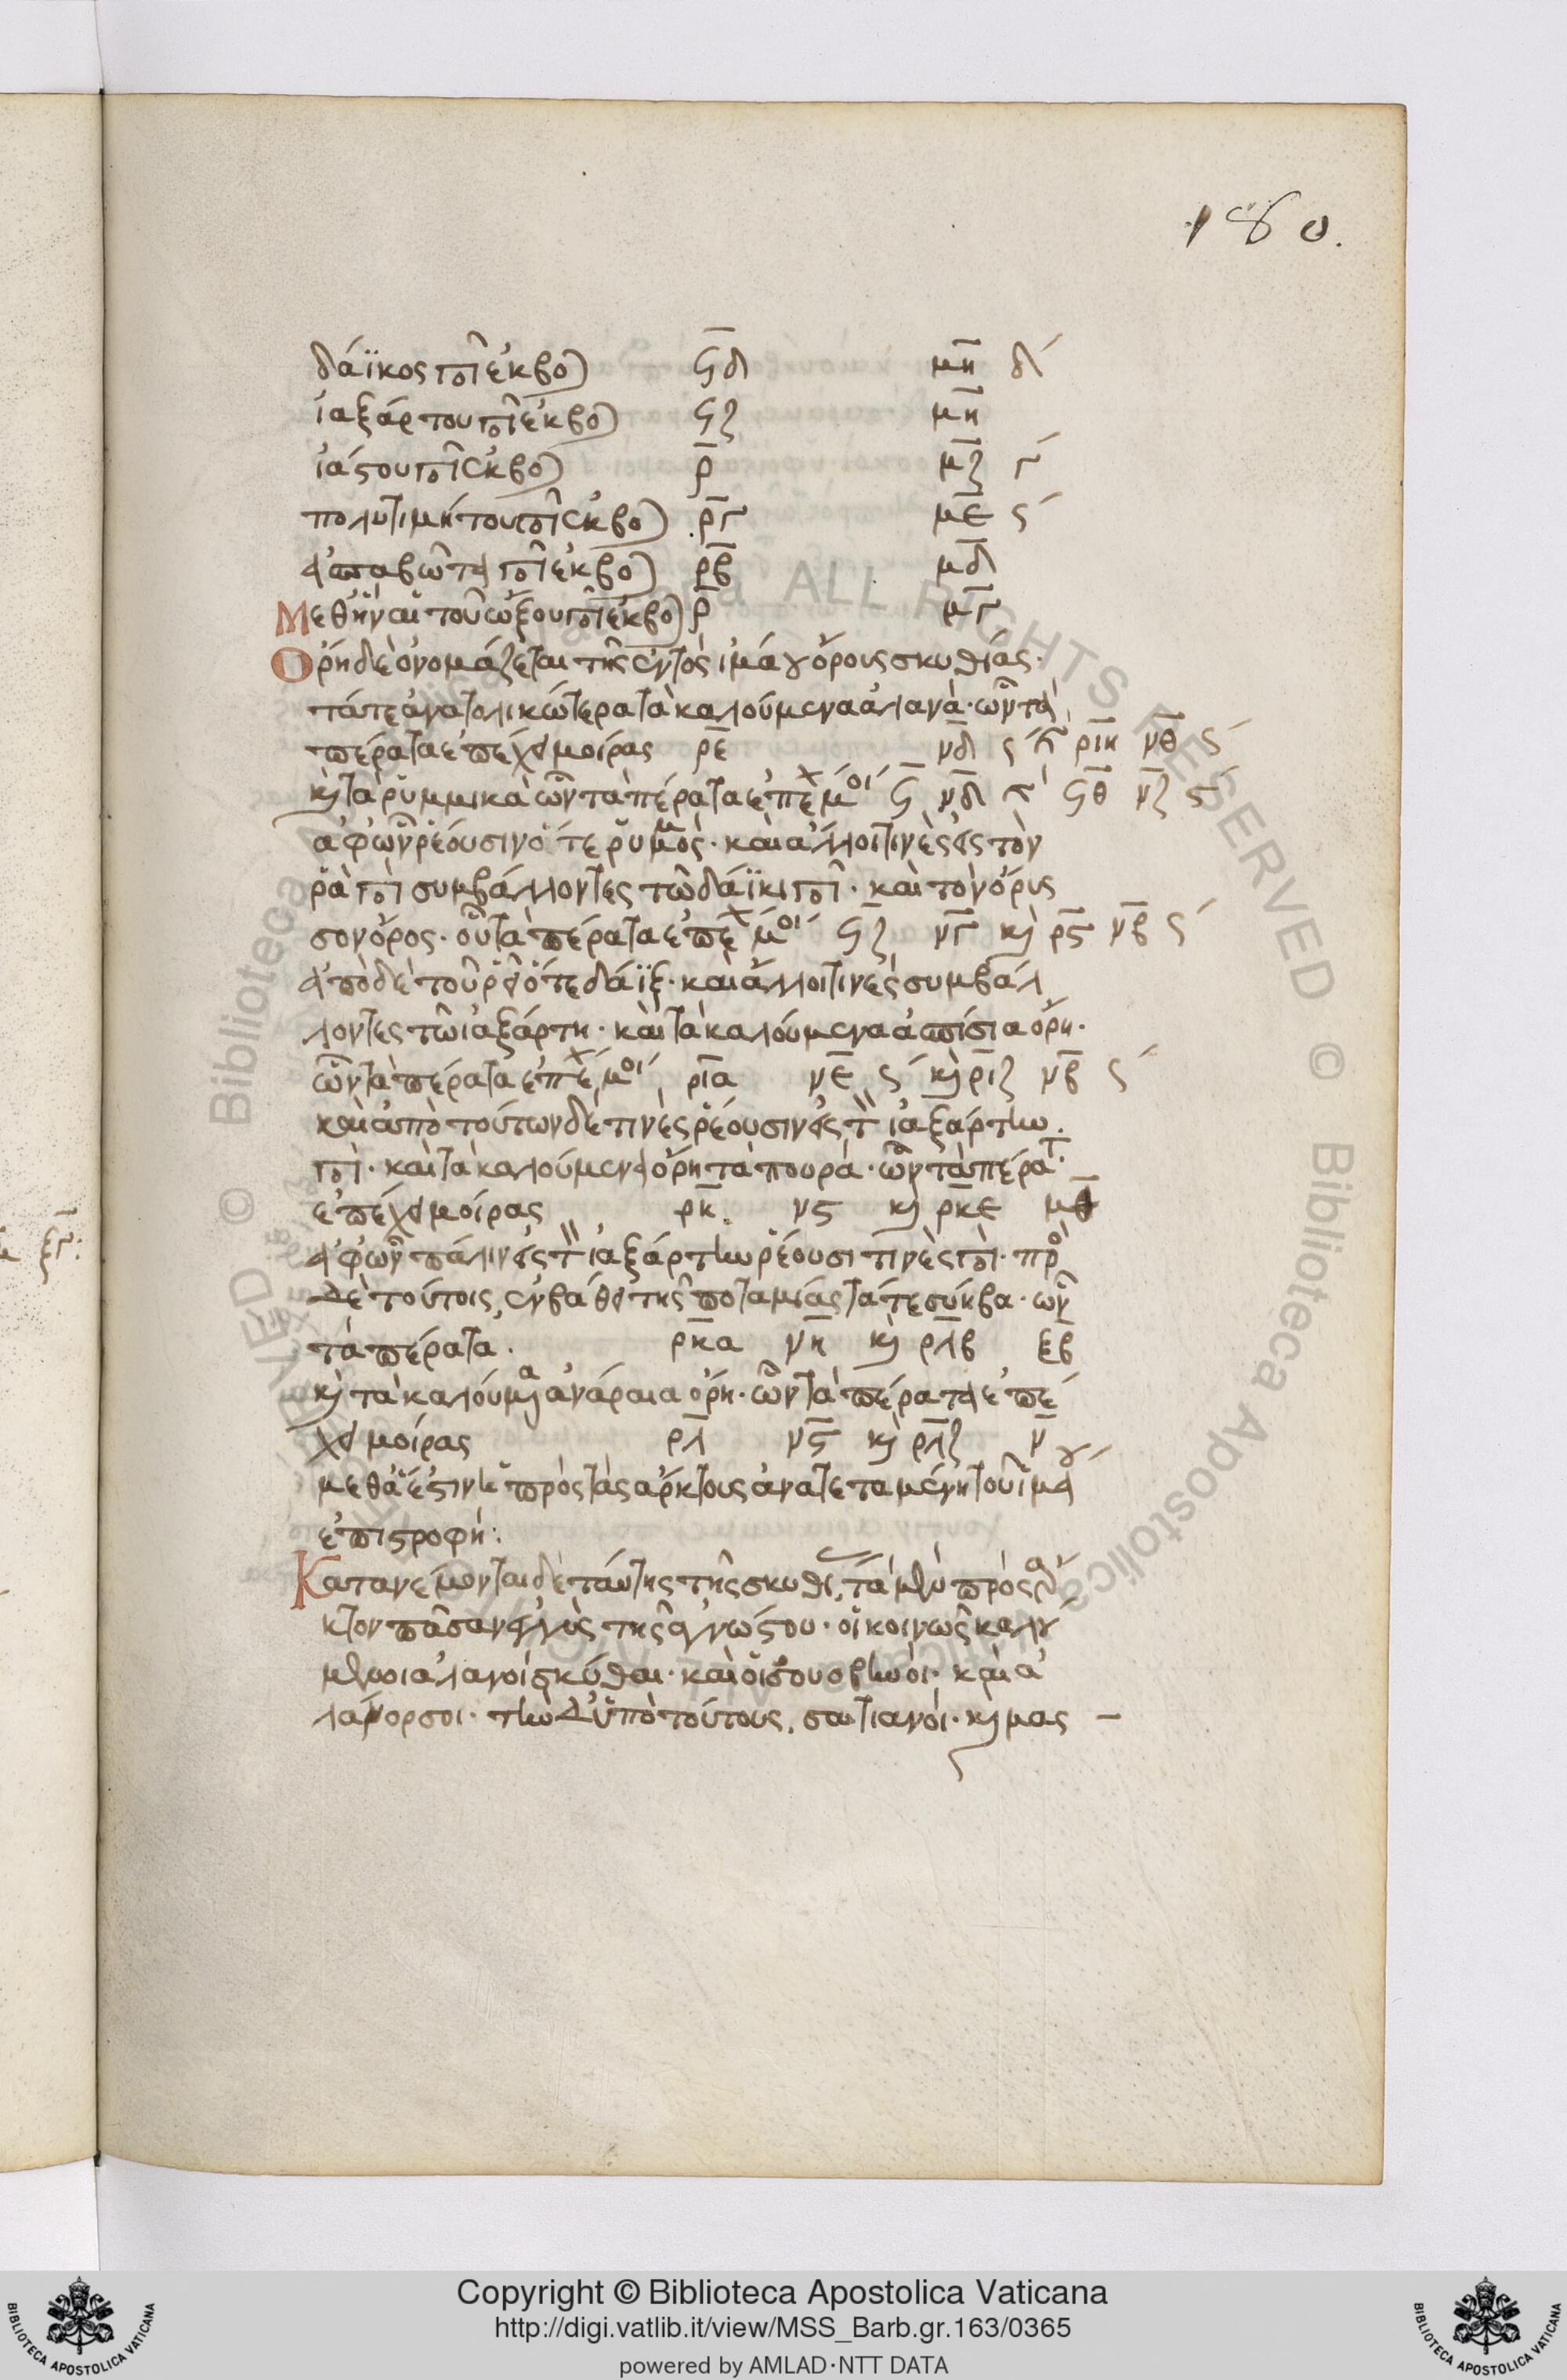 180.
δάϊκος ποτ ἐκβο ϟδ μη δ´
ἰαξάρτου ποτ ἐκβο ϟζ μη
ἰάστου ποτ ἐκβο ρ μζ γ´
πολυτιμήτου ποτ ἐκβο ργ με ς´
ἀσπαβῶτα ποτ ἐκβο ρβ μδ
Μεθἣν αἱ τοῦ ὤξου ποτ ἐκβο ρ μγ
Ὄρη δὲ ὀνομάζεται τῆς ἐντὸς ἰμάου ὄρους σκυθίας·
τά τε ἀνατολικώτερα τὰ καλούμενα ἀλανὰ· ὧν τὰ
πέρατα ἐπέχει μοίρας ρε νδ ς´ ριη νθ ς´
κ τὰ ῥυμμικὰ ὧν τὰ πέρατα ἐπεχ μοι ϟ νδ γ´ ϟθ νζ ς´
ἀφ ὧν ῥέουσιν ὅ τε ῥυμμὸς· καὶ ἄλλοι τινὲς εἰς τὸν
ῥᾶ ποτ συμβάλλοντες τῶ δάϊκι ποτ· καὶ τὸ νόρος
σον ὄρος· οὗ τὰ πέρατα ἐπεχ μοι ϟζ νγ κ ρς νβ ς´
ἀπὸ δὲ τοῦ ρεῖ ὅ τε δάϊξ· καὶ ἄλλοι τινὲς συμβάλ
λοντες τῶ ἰαξάρτη· καὶ τὰ καλούμενα ἀσπίσια ὄρη·
ὧν τὰ πέρατα ἐπεχ μοι ρια νε ς´ κ ριζ νβ ς´
καὶ ἀπὸ τούτων δέ τινες ῥέουσιν εἰς τ ἰαξάρτην
ποτ· καὶ τὰ καλούμενα ὄρη τὰπουρὰ· ὧν τὰ πέρατ
ἐπέχει μοίρας ρκ νς κ ρκε μθ
ἀφ ὧν πάλιν εἰς τ ἰαξάρτην ῥέουσι τινὲς ποτ· προ
δὲ τούτοις ἐν βάθει τῆς ποταμιάς τά τε σύηβα· ὧν
τὰ πέρατα· ρκα νη κ ρλβ ξβ
κ τὰ καλούμενα ἀνάραια ὄρη· ὧν τὰ πέρατα ἐπέ
χει μοίρας ρλ νς κ ρλζ ν
μεθ ἅ ἐστιν ἡ πρὸς τὰς ἄρκτους ἀνατεταμένη τοῦ ἰμάου
ἐπιστροφή:
Κατανέμονται δὲ ταύτης τῆς σκυθι, τὰ μὲν πρὸς ἄρ
κτον πᾶσαν ἐγγὺς τῆς ἀγνώστου· οἱ κοινῶς καλού
μενοι ἀλανοὶ σκύθαι· καὶ οἱ σουοβηνοὶ· καὶ ἀ
λάνορσοι· τὴν δ ὑπὸ τούτους, σαιτιανοί· κ μας
Copyright © Biblioteca Apostolica Vaticana
http://digi.vatlib.it/view/MSS_Barb.gr.163/0365
powered by AMLAD·NTT DATA